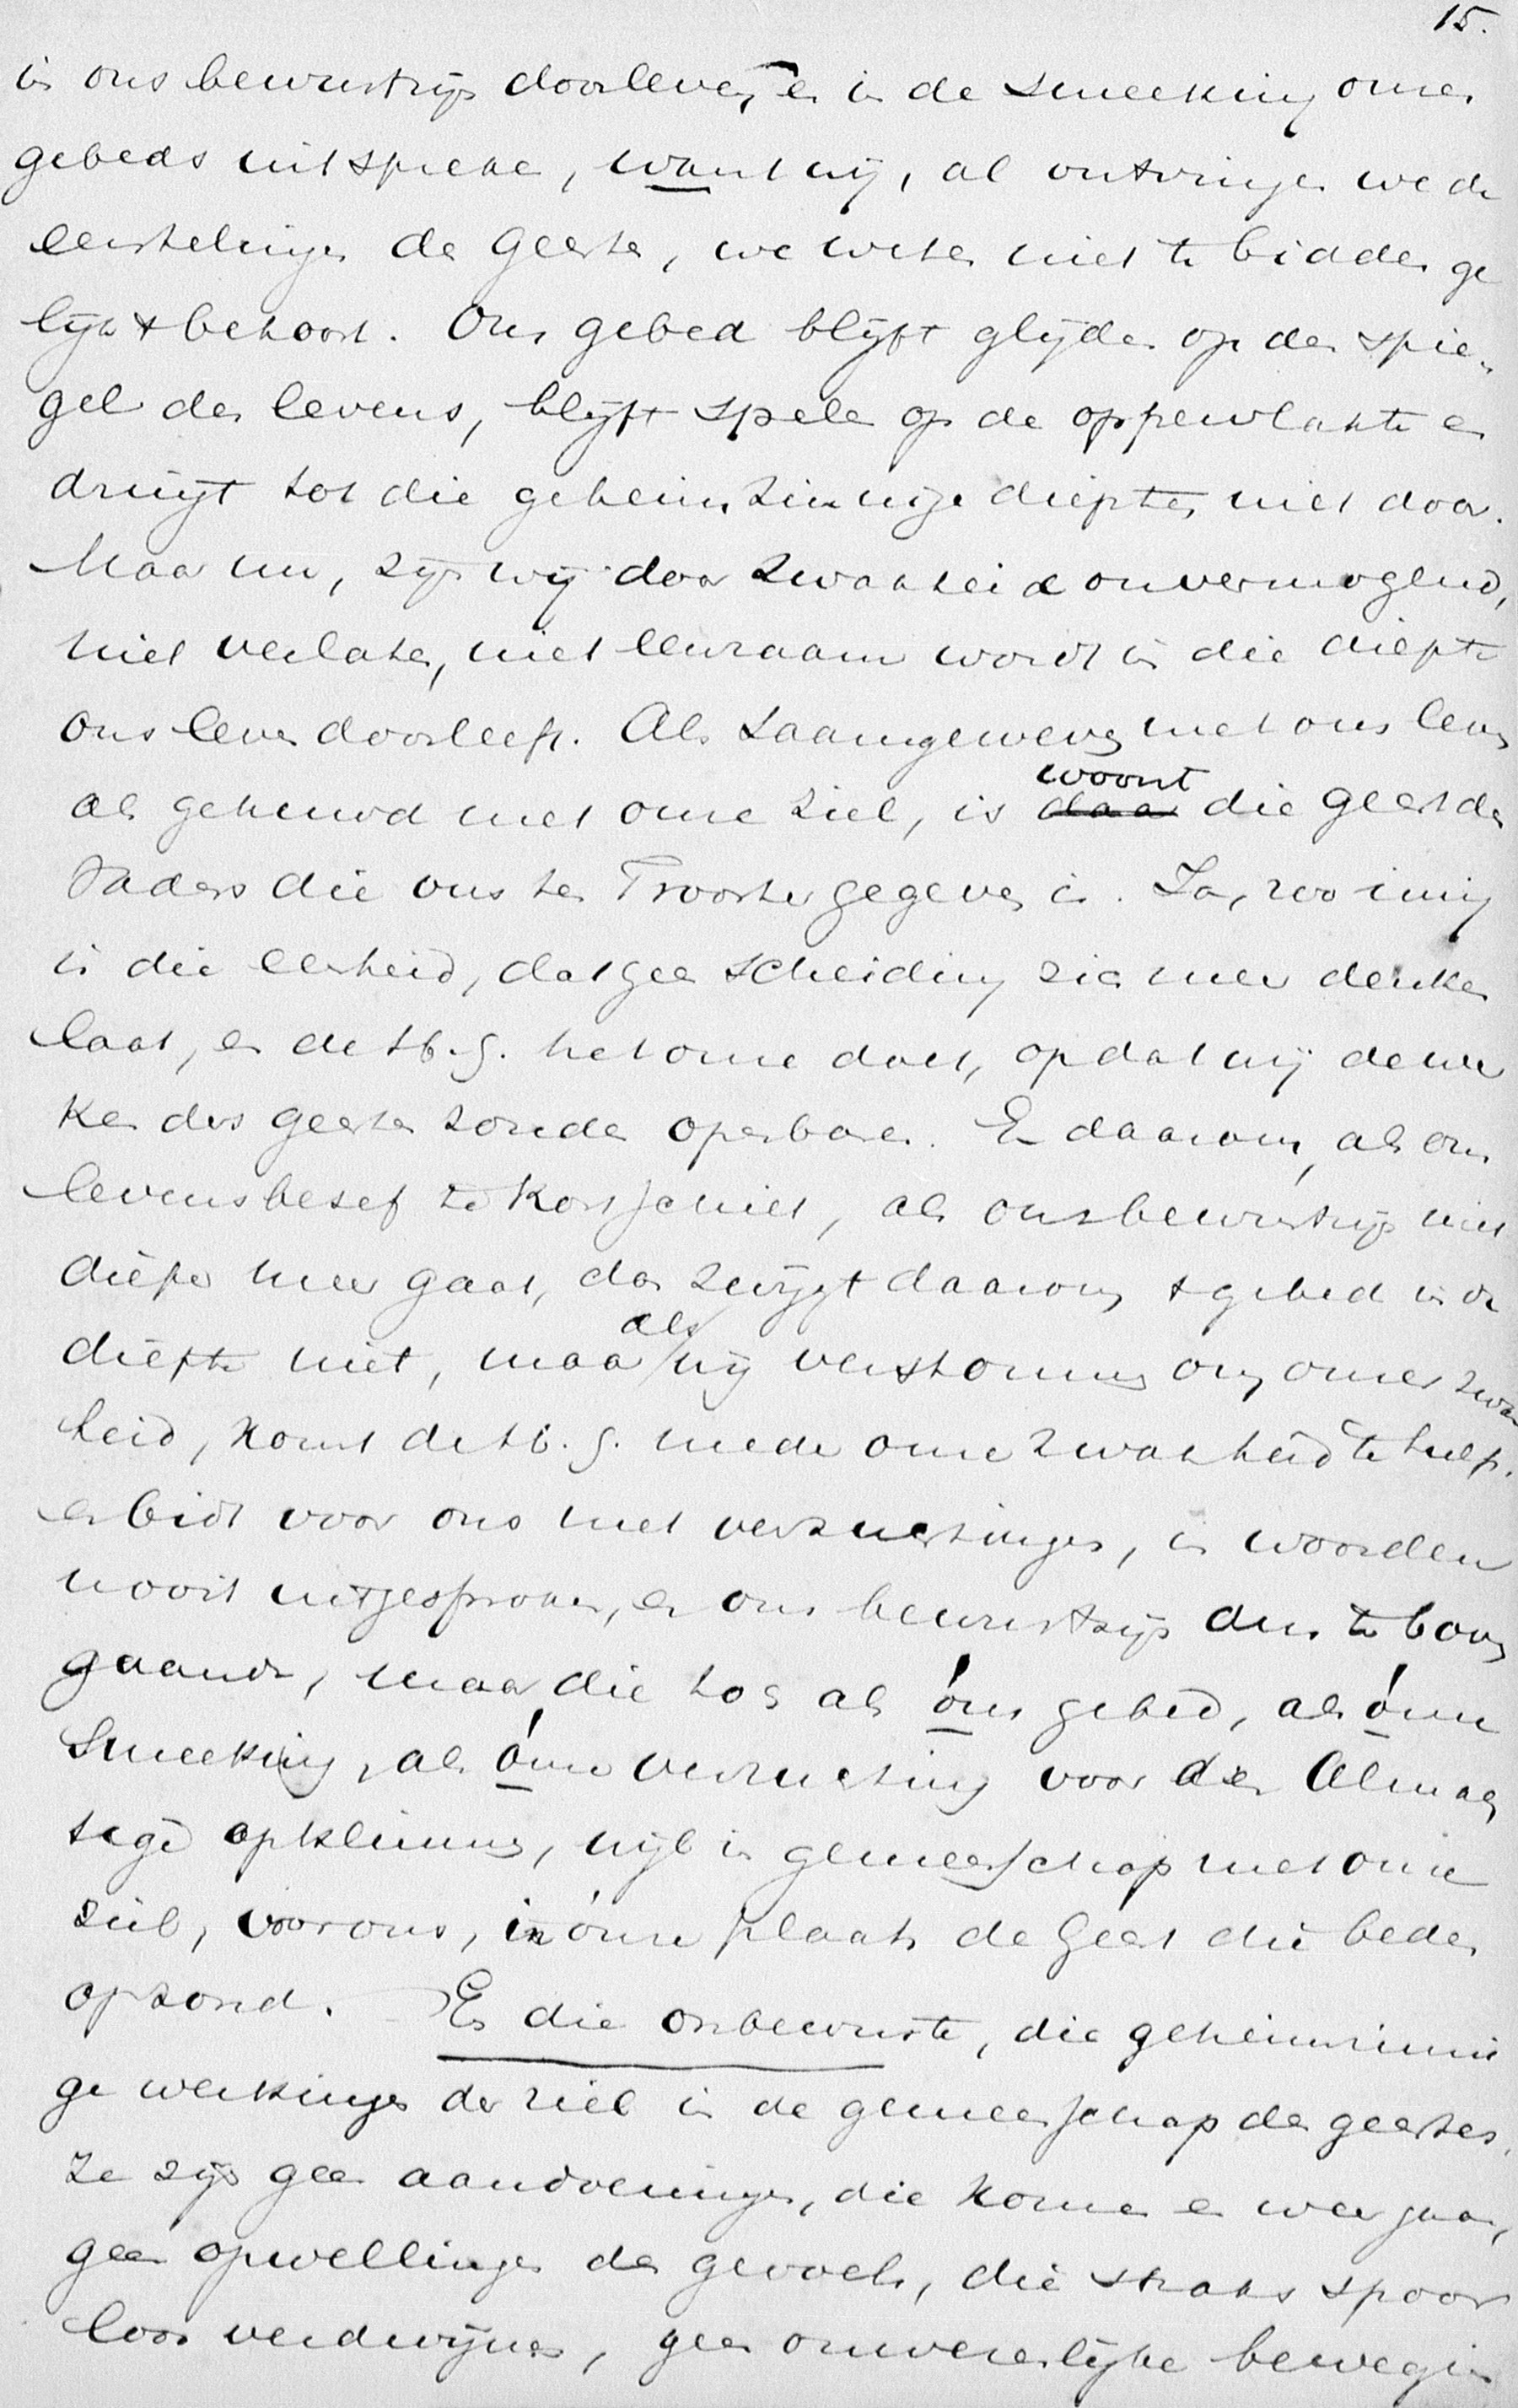 15.
in ons bewustzijn doorleven, en in de smeeking onzer
gebeds uitspreken, want wij, al ontvingen we de
eerstelingen des Geestes, we weten niet te bidden ge
lijk 't behoort. Ons gebed blijft glijden op den spie-
gel des levens, blijft spelen op de oppervlakte en
dringt tot die geheimzinnige diepten niet door.
Maar nu, zijn wij door zwakheid onvermogend,
niet verlaten, niet eenzaam wordt in die diepte
ons leven doorleefd. Als saamgeweven met ons leven
als gehuwd met onze ziel, is daar woont die geest des
Vaders die ons ten Trooster gegeven is. Ja, zoo innig
is die eenheid, dat geen scheiding zich meer denken
laat, en de H. G. het onze doet, opdat wij de wer
ken des geestes zouden openbaren. En daarom, als ons
levensbesef te kort schiet, als ons bewustzijn niet
dieper meer gaat, dan zwijgt daarom 't gebed in de
diepte niet, maar als wij verstommen om onzer zwak
heid, komt de H. G. mede onze zwakheid te hulp.
en bidt voor ons met verzuchtingen, in woorden
nooit uitgesproken, en ons bewustzijn dus te boven
gaande, maar die toch als óns gebed, als ónze
smeeking, als ónze verzuchting voor den Almach
tige opklimmen, wijl in gemeenschap met onze
ziel, voor ons, in ónze plaats de Geest die beden
opzond. En die onbewuste, die geheimzinni
ge werkingen der ziel in de gemeenschap des geestes,
ze zijn geen aandoeningen, die komen en weer gaan,
geen opwellingen des gevoels, die straks spoor
loos verdwijnen, geen onwezenlijke bewegin